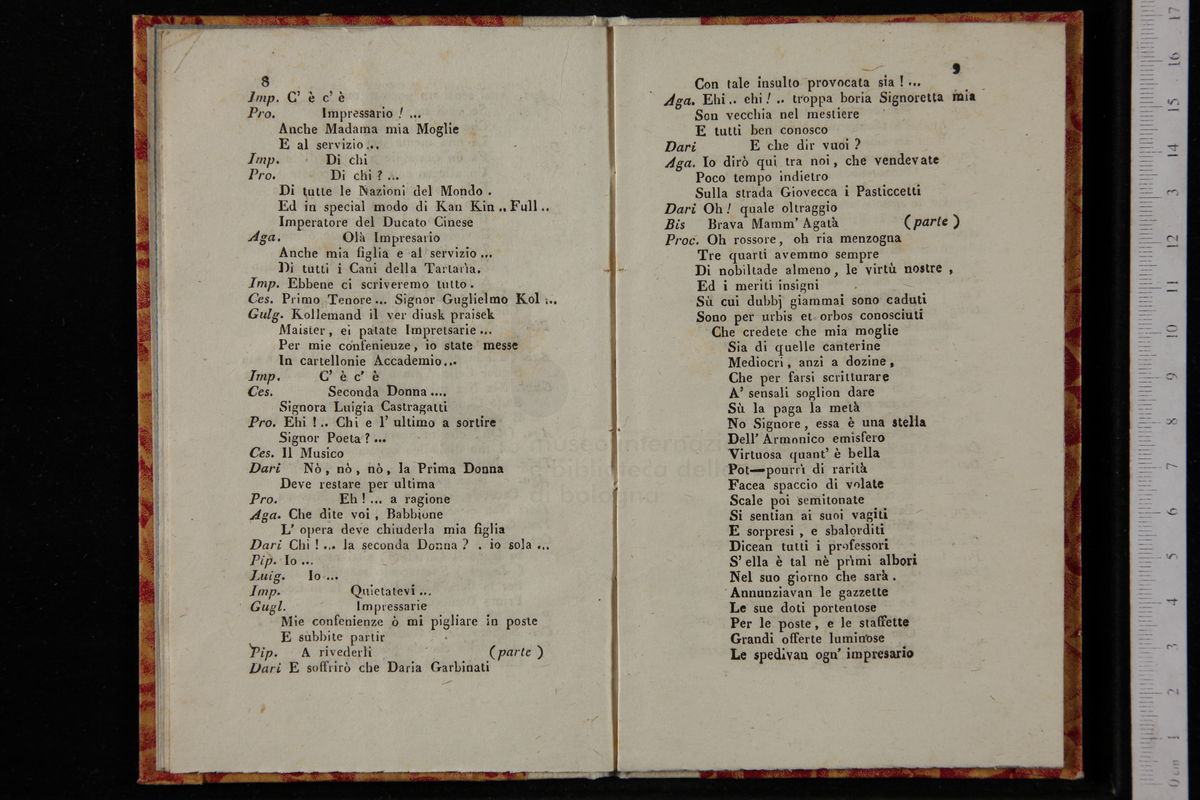 8
Imp. C' è c' è
Pro. Impressario ! ...
Anche Madama mia Moglie
E al servizio...
Imp. Di chi
Pro. Di chi ? ...
Di tutte le Nazioni del Mondo .
Ed in special modo di Kan Kin .. Full ..
Imperatore del Ducato Cinese
Aga. Olà Impresario
Anche mia figlia e al servizio ...
Di tutti i Cani della Tartaria.
Imp. Ebbene ci scriveremo tutto .
Ces. Primo Tenore ... Signor Guglielmo Kol ...
Gulg. Kollemand il ver diusk praisek
Maister , ei patate Impretsarie ...
Per mie confenienze , io state messe
In cartellonie Accademio...
Imp. C' è c' è
Ces. Seconda Donna ....
Signora Luigia Castragatti
Pro. Ehi ! .. Chi e l' ultimo a sortire
Signor Poeta ? ...
Ces. Il Musico
Dari Nò , nò , nò , la Prima Donna
Deve restare per ultima
Pro. Eh ! ... a ragione
Aga. Che dite voi , Babbione
L' opera deve chiuderla mia figlia
Dari Chi ! ... la seconda Donna ? . io sola ...
Pip. Io ...
Luig. Io ...
Imp. Quietatevi ...
Gugl. Impressarie
Mie confenienze ò mi pigliare in poste
E subbite partir
Pip. A rivederli (parte )
Dari E soffrirò che Daria Garbinati
9
Con tale insulto provocata sia ! ...
Aga. Ehi .. ehi ! .. troppa boria Signoretta mia
Son vecchia nel mestiere
E tutti ben conosco
Dari E che dir vuoi ?
Aga. Io dirò qui tra noi , che vendevate
Poco tempo indietro
Sulla strada Giovecca i Pasticcetti
Dari Oh ! quale oltraggio
Bis Brava Mamm' Agatà (parte )
Proc. Oh rossore , oh ria menzogna
Tre quarti avemmo sempre
Di nobiltade almeno , le virtù nostre ,
Ed i meriti insigni
Sù cui dubbj giammai sono caduti
Sono per urbis et orbos conosciuti
Che credete che mia moglie
Sia di quelle canterine
Mediocri , anzi a dozine ,
Che per farsi scritturare
A' sensali soglion dare
Sù la paga la metà
No Signore , essa è una stella
Dell' Armonico emisfero
Virtuosa quant' è bella
Pot—pourrì di rarità
Facea spaccio di volate
Scale poi semitonate
Si sentian ai suoi vagiti
E sorpresi , e sbalorditi
Dicean tutti i professori
S' ella è tal nè primi albori
Nel suo giorno che sarà .
Annunziavan le gazzette
Le sue doti portentose
Per le poste , e le staffette
Grandi offerte luminose
Le spedivan ogn' impresario
museo internazi
e biblioteca della
di bologna
0 cm 1 2 3 4 5 6 7 8 9 10 11 12 13 14 15 16 17